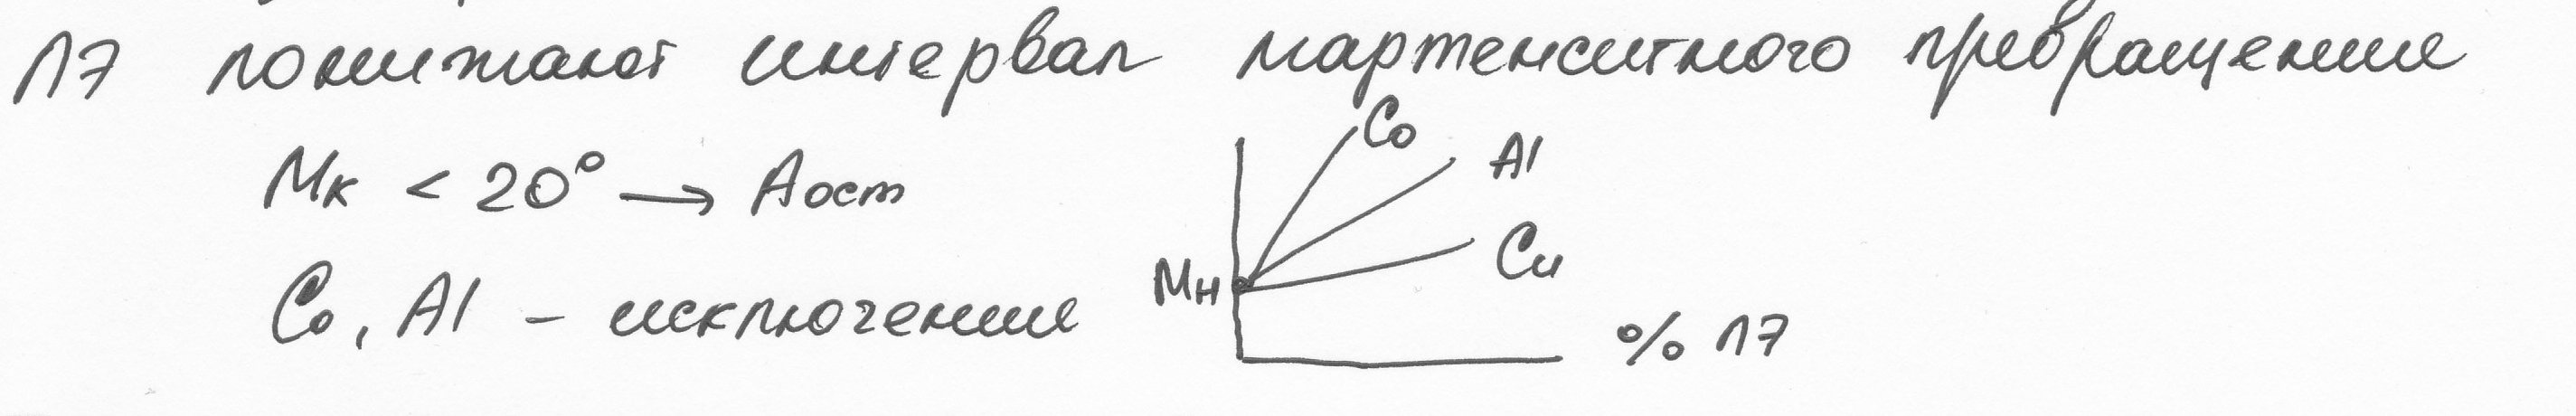 ЛЭ понижают интервал мартенситного превращение
Мк < 20° → Аост
Со, Al - исключение
Co
Al
Cu
Мн
% ЛЭ